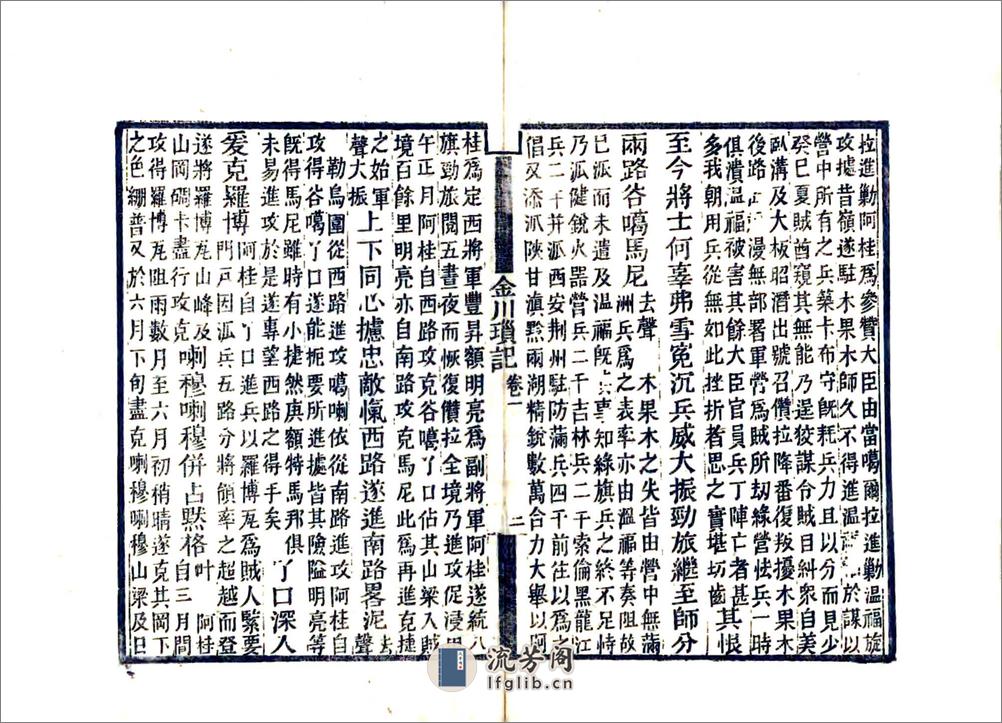 拉進勦阿桂爲參贊大臣由當噶爾拉進勦溫福旋
攻據昔嶺遂駐木果木師久不得進溫於謀以
營中所有之兵築卡布守旣耗兵力且以分而見少
癸巳夏賊酋窺其無能乃逞狡謀令賊目糾衆自美
臥溝及大板昭潛出號召儹拉降番復叛擾木果木
後路漫無部署軍營爲賊所刼綠營怯兵一時
俱潰溫福被害其餘大臣官員兵丁陣亡者甚
多我朝用兵從無如此挫折者思之實堪切齒
其恨
至今將士何辜弗雪冤沉兵威大振勁旅繼至師分
兩路谷噶馬尼
去聲 木果木之失皆由營中無滿
洲兵爲之表率亦由溫福等奏阻故
已派而未遣及温福旣事知綠旗兵之終不足恃
乃派健銳火器營兵二千吉林兵二千索倫黑龍江
兵二千并派西安荆州駐防滿兵四千前往以爲之
倡又添派陝甘滇黔兩湖精銳數萬合力大舉以阿
金川瑣記 卷一 二
桂爲定西將軍豐昇額明亮爲副將軍阿桂遂統八
旗勁旅閱五晝夜而恢復儹拉全境乃進攻促浸甲
午正月阿桂自西路攻克谷噶丫口佔其山梁入賊
境百餘里明亮亦自南路攻克馬尼此爲再進克捷
之始軍
聲大振
上下同心攄忠敵愾西路遂進南路畧泥
去聲
勒烏圍從西路進攻噶喇依從南路進攻阿桂自
攻得谷噶丫口遂能扼要所進據皆其險隘明亮等
旣得馬尼雖時有小捷然庚額特馬那俱
未易進攻於是遂專望西路之得手矣
丫口深入
爰克羅博
阿桂自丫口進兵以羅博瓦爲賊人緊要
門戸因派兵五路分將領率之超越而登
遂將羅博瓦山峰及
山岡碉卡盡行攻克
喇穆喇穆併占黙格
叶 阿桂
自三月間
攻得羅博瓦阻雨數月至六月初稍晴遂克其岡下
之色淜普又於六月下旬盡克喇穆喇穆山梁及日
流芳阁
lfglib.cn